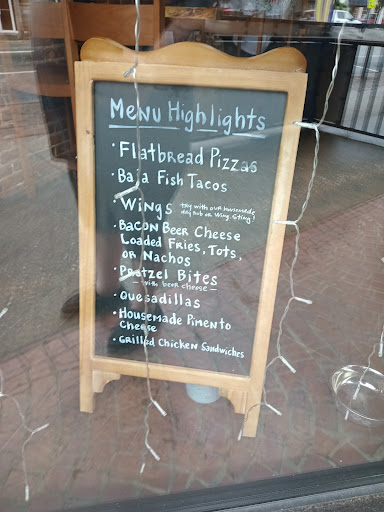 Menu Highlights
• Flatbread Pizzas
• Baja Fish Tacos
• Wings try with our housemade
dry rub or Wing Sting!
• Bacon Beer Cheese
Loaded Fries, Tots,
or Nachos
• Pretzel Bites
- with beer cheese -
• Quesadillas
• Housemade Pimento
Cheese
• Grilled Chicken Sandwiches